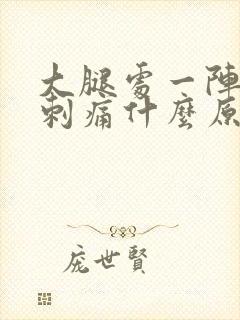 大腿處一陣
刺痛什麼原
庞世賢